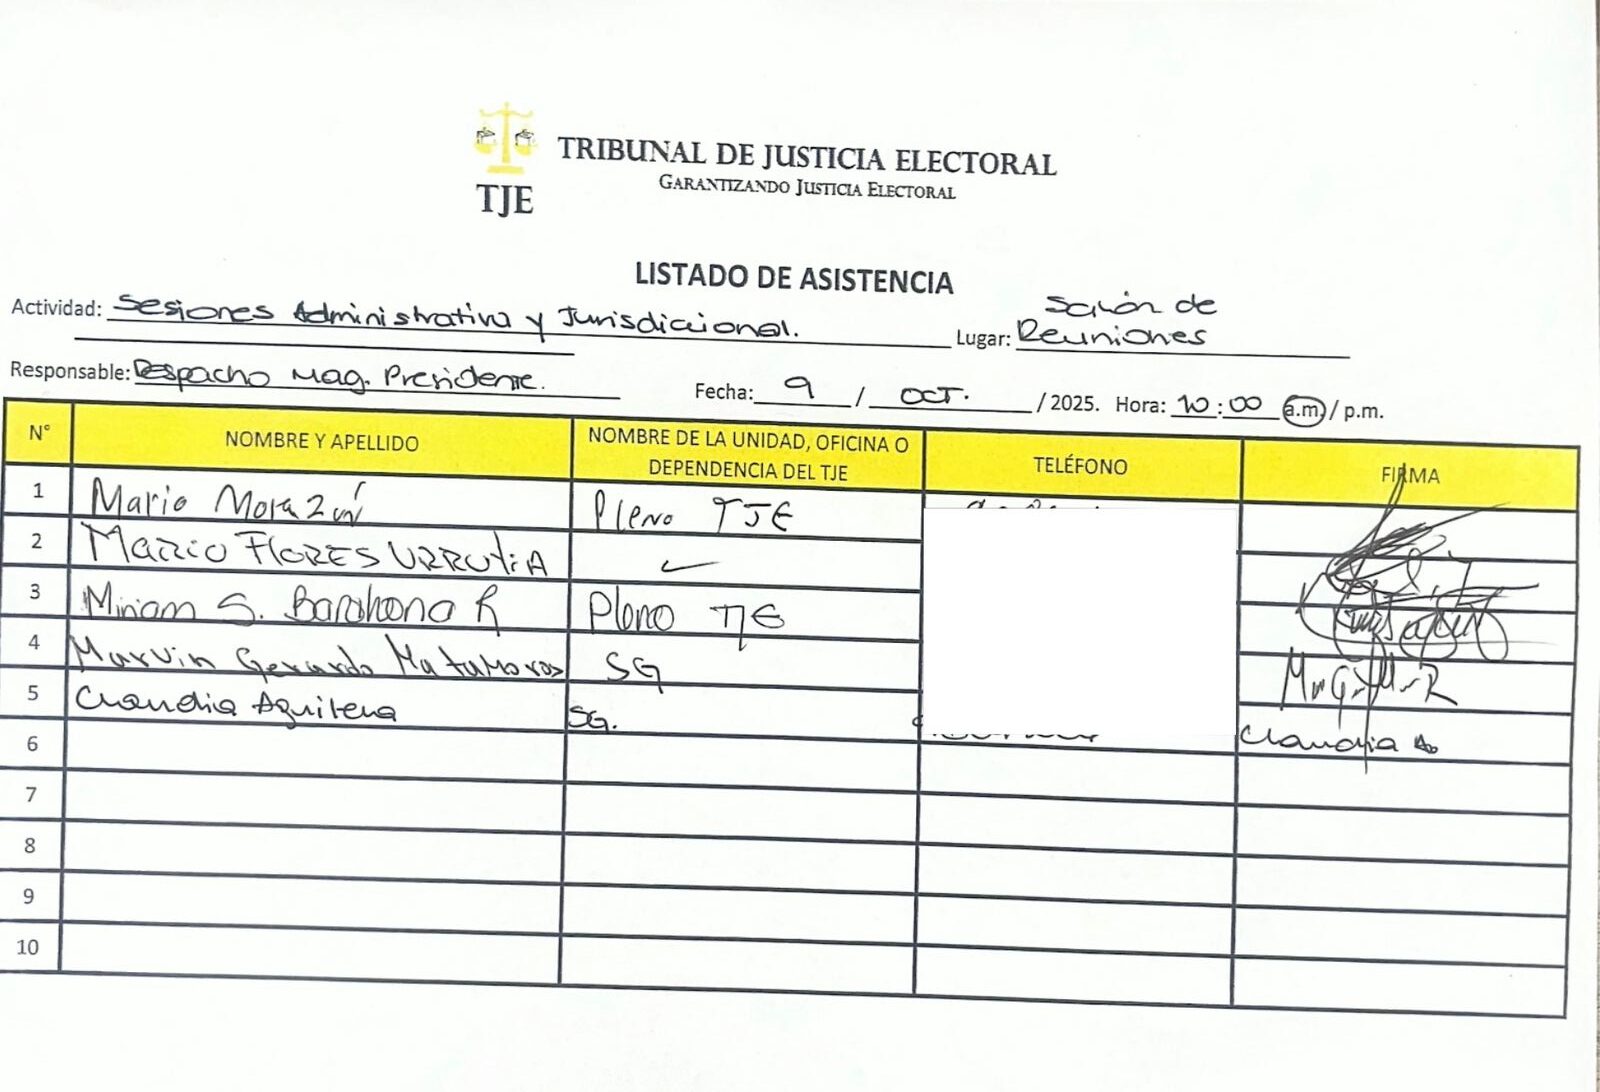 TRIBUNAL DE JUSTICIA ELECTORAL
GARANTIZANDO JUSTICIA ELECTORAL
TJE
LISTADO DE ASISTENCIA
Actividad: Sesiones Administrativa y Jurisdiccional.
Lugar: Salón de Reuniones
Responsable: Despacho Mag. Presidente.
Fecha: 9 / OCT. / 2025. Hora: 10:00 a.m / p.m.
N° NOMBRE Y APELLIDO NOMBRE DE LA UNIDAD, OFICINA O DEPENDENCIA DEL TJE TELÉFONO FIRMA
1 Mario Morazán Pleno TJE
2 MARIO FLORES URRUTIA
3 Miriam S. Barahona R Pleno TJE
4 Marvin Gerardo Matamoros SG
5 Claudia Aguilera SG. Claudia A.
6
7
8
9
10